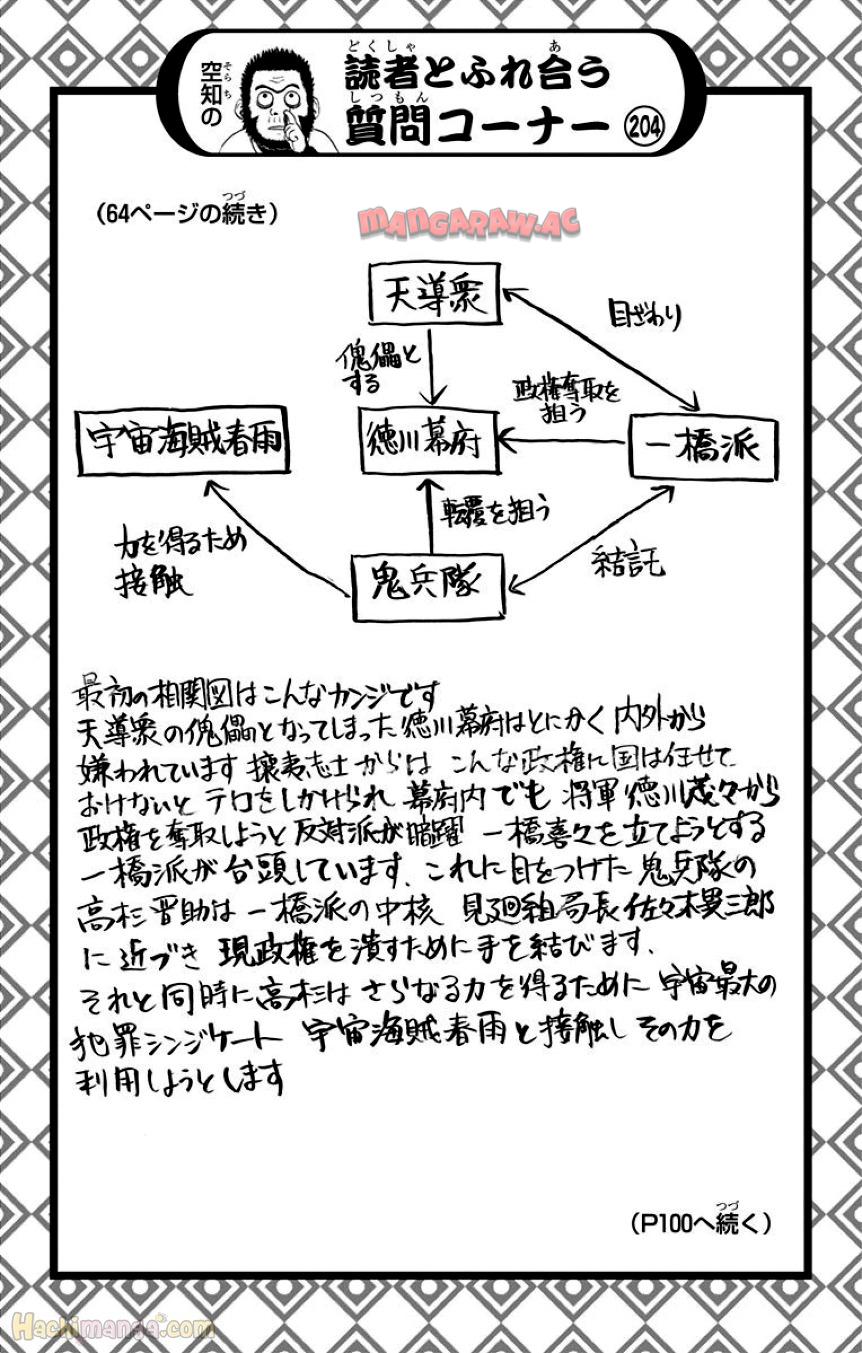 空知の
読者とふれ合う
質問コーナー 204
(64ページの続き)
MANGARAW.AC
天導衆
目ざわり
傀儡と
する
政権奪取を
狙う
宇宙海賊春雨
徳川幕府
一橋派
転覆を狙う
力を得るため
接触
結託
鬼兵隊
最初の相関図はこんなカンジです
天導衆の傀儡となってしまった徳川幕府はとにかく内外から
嫌われています 攘夷志士からは こんな政権に国は任せて
おけないと テロをしかけられ 幕府内でも 将軍徳川茂々から
政権を奪取しようと反対派が暗躍 一橋喜々を立てようとする
一橋派が台頭しています、これに目をつけた 鬼兵隊の
高杉晋助は一橋派の中核 見廻組局長佐々木異三郎
に近づき 現政権を潰すために手を結びます、
それと同時に高杉は さらなる力を得るために 宇宙最大の
犯罪シンジケート 宇宙海賊春雨と接触し その力を
利用しようとします
(P100へ続く)
Hachimanga.com